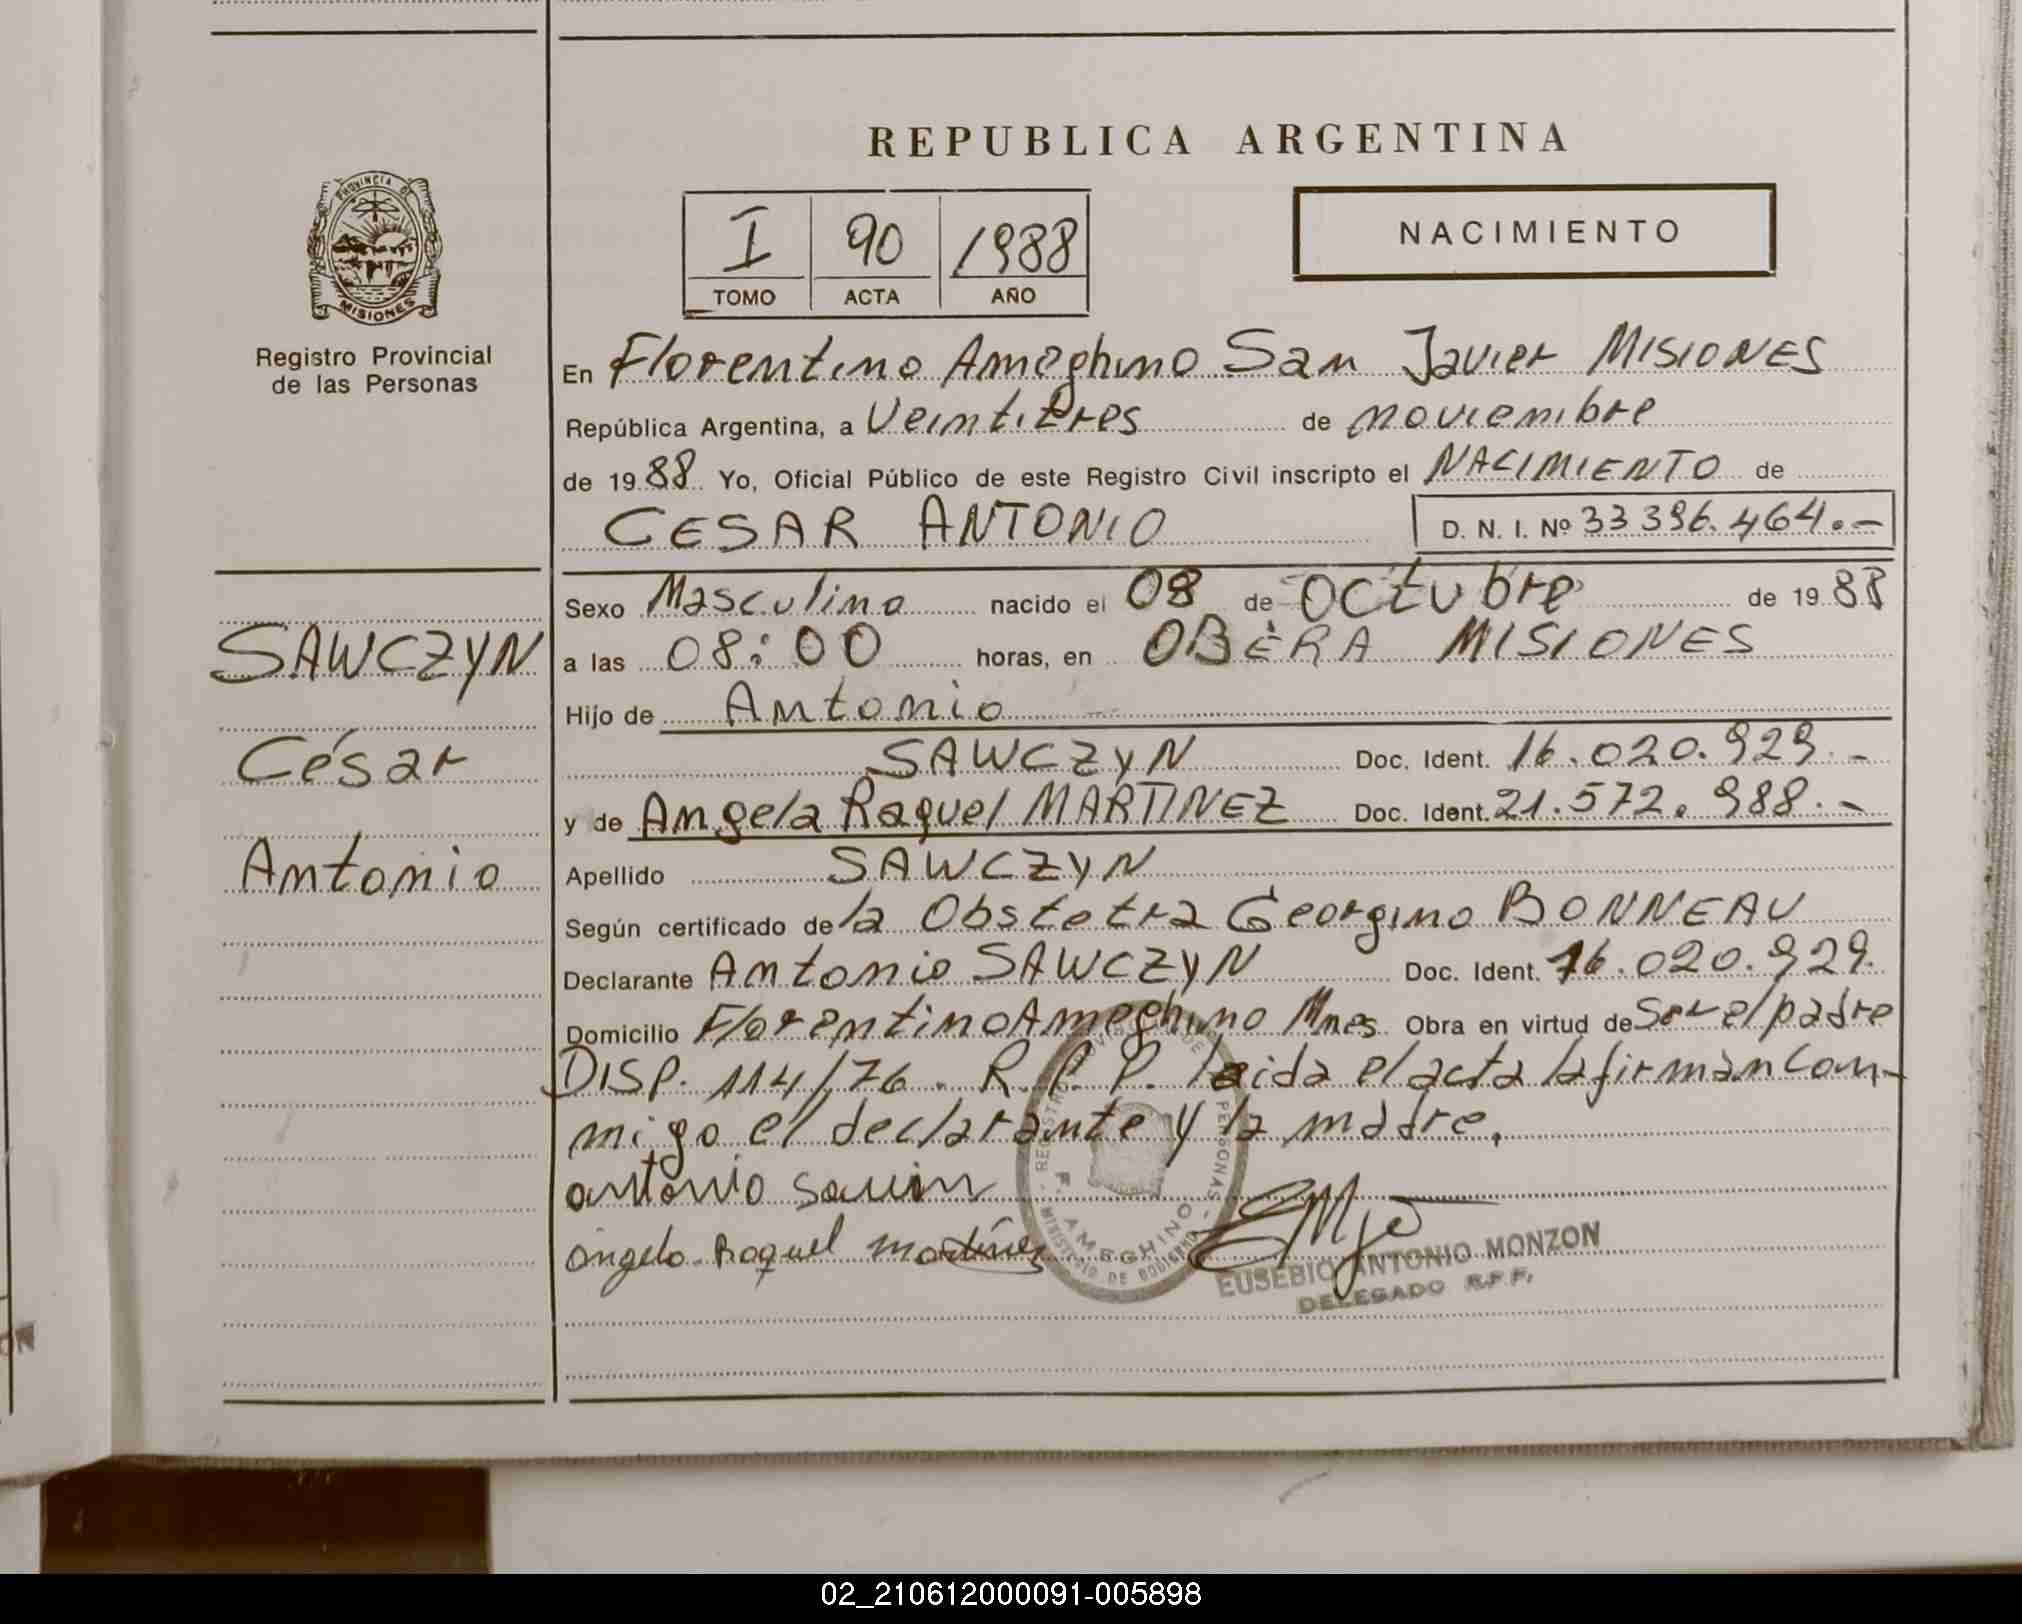 REPUBLICA ARGENTINA
PROVINCIA DE
MISIONES
Registro Provincial
de las Personas
I 90 1988
TOMO ACTA AÑO
NACIMIENTO
En Florentino Ameghino San Javier MISIONES
República Argentina, a Veintitres de noviembre
de 1988 Yo, Oficial Público de este Registro Civil inscripto el NACIMIENTO de
CESAR ANTONIO D. N. I. Nº 33 396.464.-
Sexo Masculino nacido el 08 de Octubre de 1988
a las 08:00 horas, en OBERA MISIONES
Hijo de Antonio
SAWCZYN Doc. Ident. 16.020.929.-
y de Angela Raquel MARTINEZ Doc. Ident. 21.572.988.-
Apellido SAWCZYN
Según certificado de la Obstetra Georgina BONNEAU
Declarante Antonio SAWCZYN Doc. Ident. 16.020.929.
Domicilio Florentino Ameghino Mnes. Obra en virtud de Ser el padre
DISP. 114/76. R.P.P. leida el acta la firman con-
migo el declarante y la madre.
antonio
angela Raquel martínez
REGISTRO PROVINCIAL DE LAS PERSONAS - MINISTERIO DE GOBIERNO -
F. AMEGHINO
EUSEBIO ANTONIO MONZON
DELEGADO R.P.P.
SAWCZYN
César
Antonio
ON
02_210612000091-005898